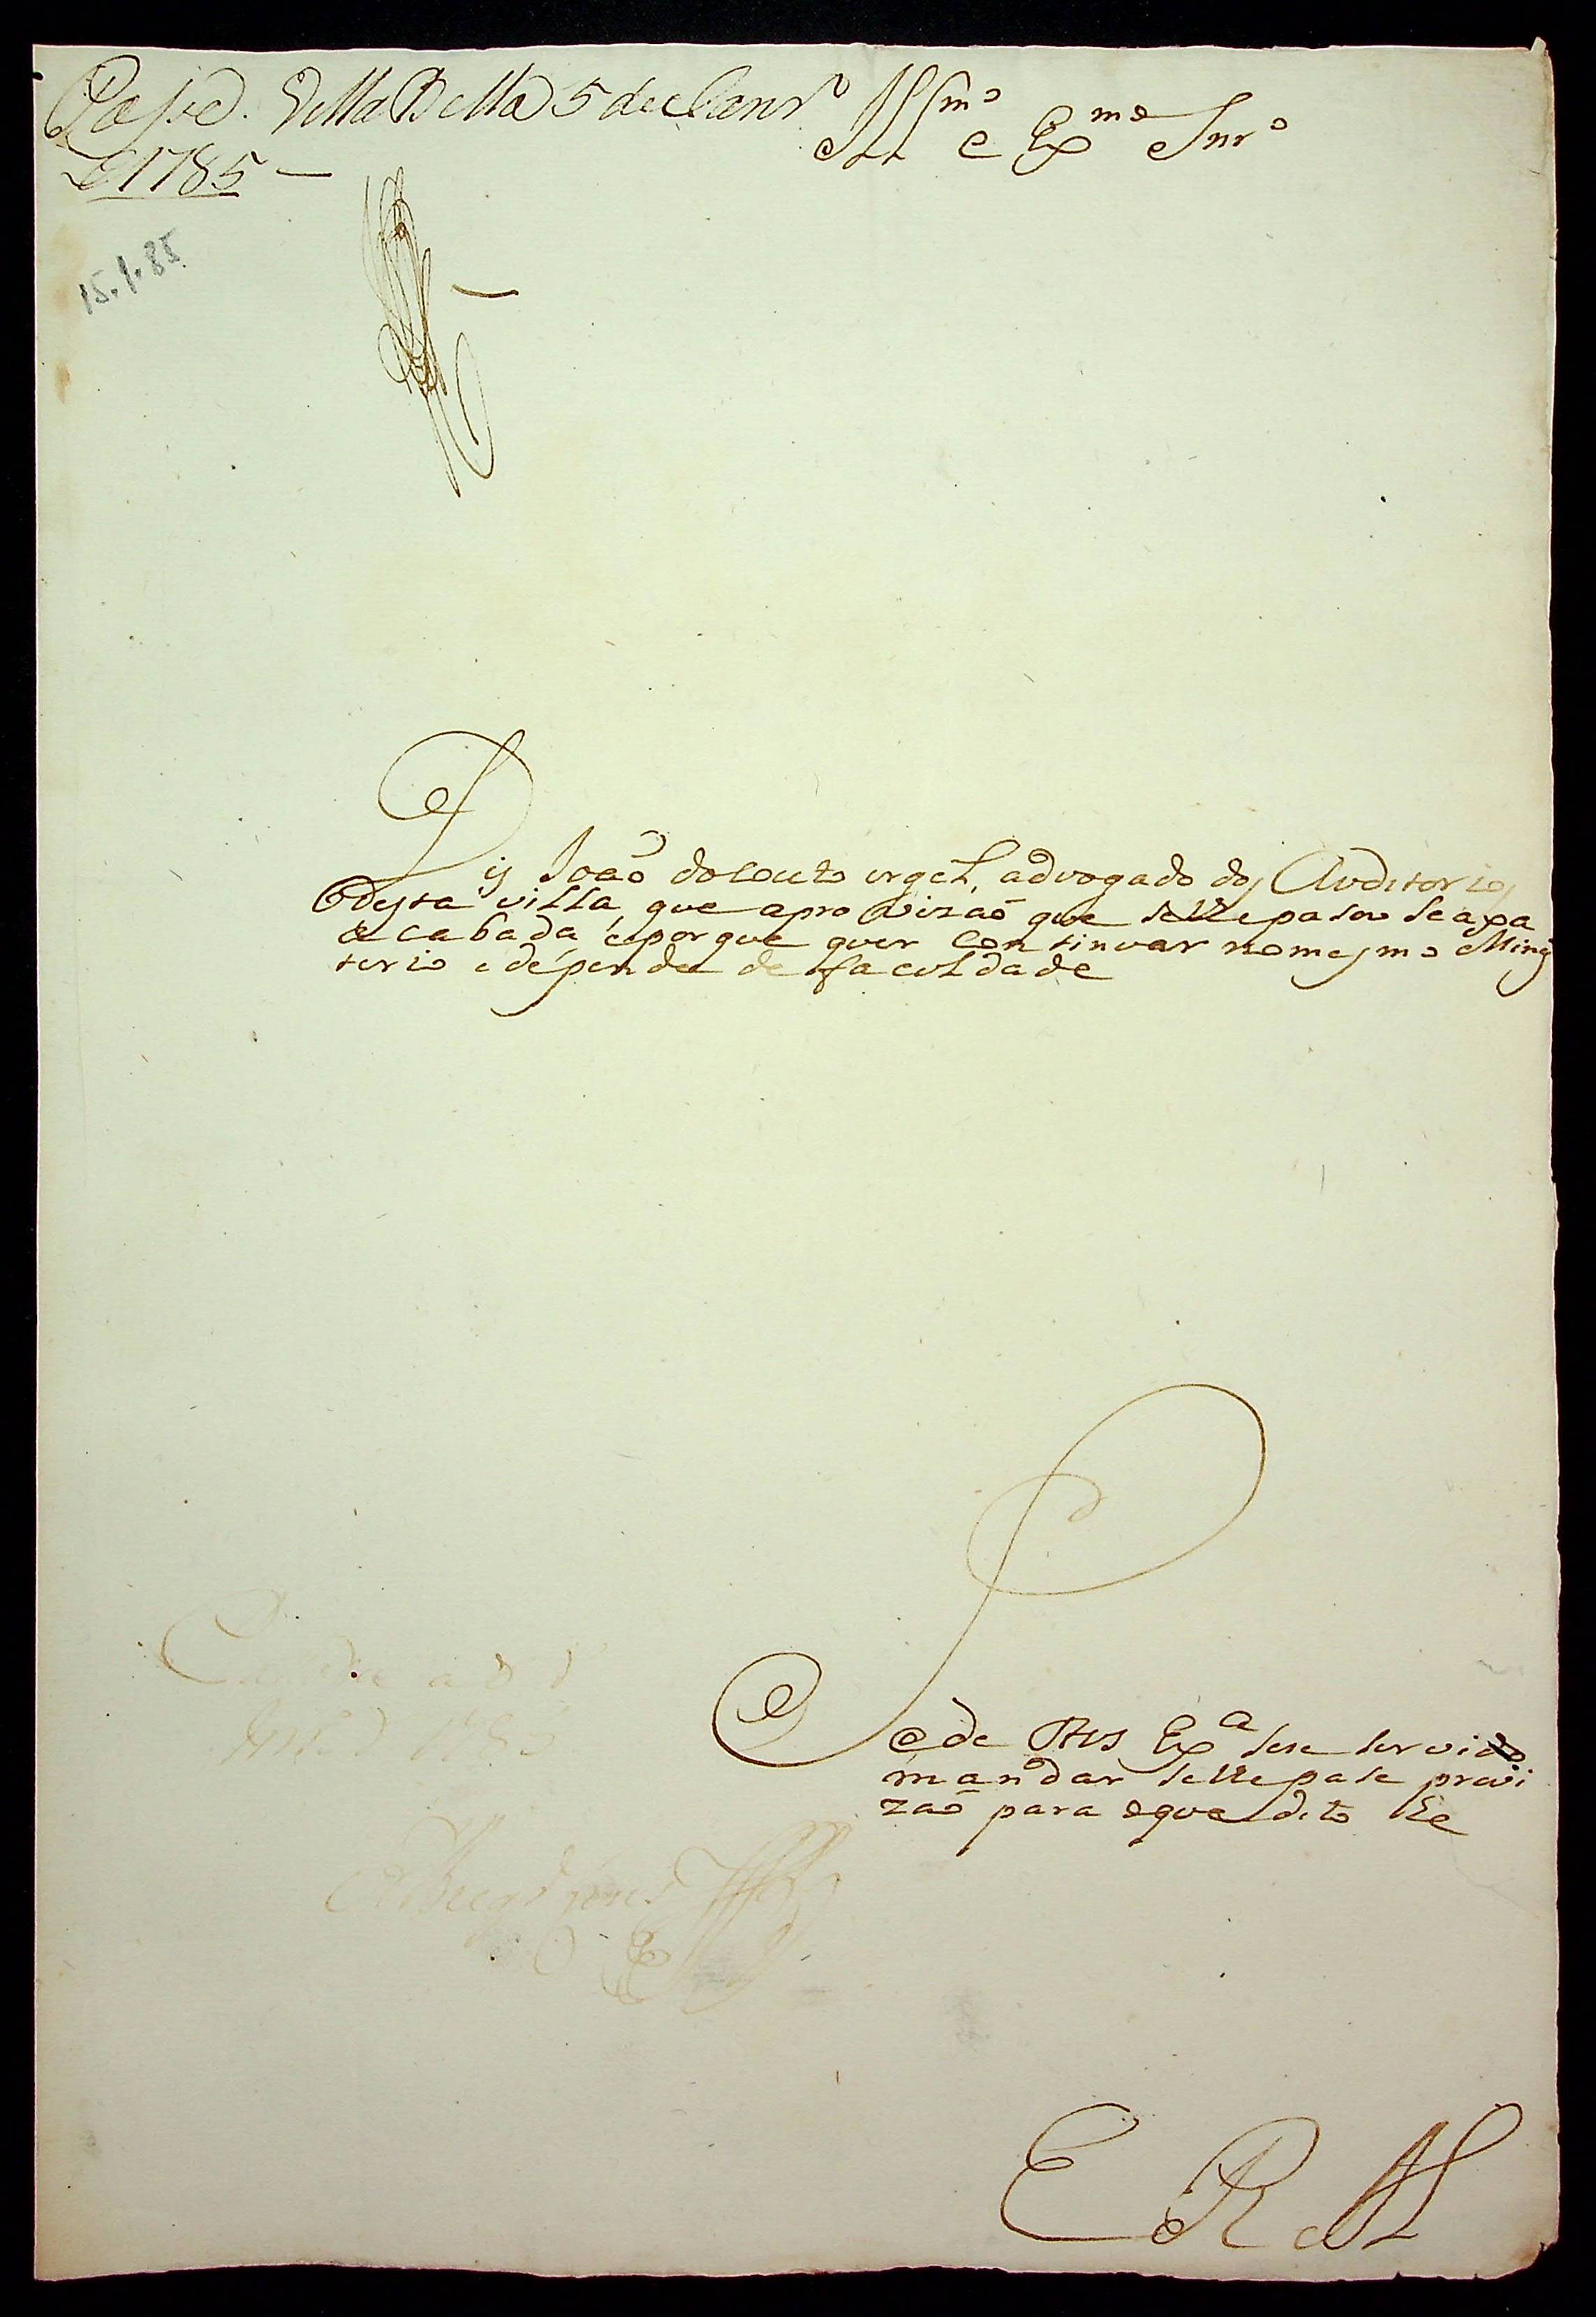 Passe. Villa Bella 5 de Janrº
de 1785 —
Illmº e Exmº Snrº
15.1.85
Dis João do Couto urgel, advogado dos Auditorios
desta villa, que aproVizaõ que selhepasou seaxa
acabada, eporque quer continuar nomesmo Minis
terio edepende de faculdade
Pede AVS Exª sera servido
mandar selhepase provi
zaõ para oque dito he
E R M